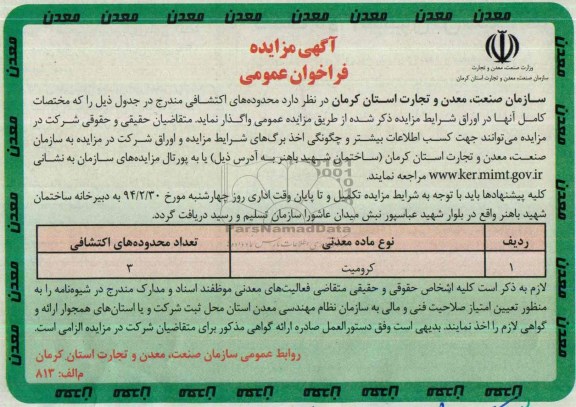 معدن معدن معدن معدن معدن معدن معدن معدن
آگهی مزایده
فراخوان عمومی
وزارت صنعت، معدن و تجارت
سازمان صنعت، معدن و تجارت استان کرمان
سازمان صنعت، معدن و تجارت استان کرمان در نظر دارد محدوده‌های اکتشافی مندرج در جدول ذیل را که مختصات
کامل آنها در اوراق شرایط مزایده ذکر شده از طریق مزایده عمومی واگذار نماید. متقاضیان حقیقی و حقوقی شرکت در
مزایده می‌توانند جهت کسب اطلاعات بیشتر و چگونگی اخذ برگ‌های شرایط مزایده و اوراق شرکت در مزایده به سازمان
صنعت، معدن و تجارت استان کرمان (ساختمان شهید باهنر به آدرس ذیل) یا به پورتال مزایده‌های سازمان به نشانی
www.ker.mimt.gov.ir مراجعه نمایند.
کلیه پیشنهادها باید با توجه به شرایط مزایده تکمیل و تا پایان وقت اداری روز چهارشنبه مورخ ۹۴/۲/۳۰ به دبیرخانه ساختمان
شهید باهنر واقع در بلوار شهید عباسپور نبش میدان عاشورا سازمان تسلیم و رسید دریافت گردد.
ParsNamadData
ردیف نوع ماده معدنی تعداد محدوده‌های اکتشافی
۱ کرومیت ۳
لازم به ذکر است کلیه اشخاص حقوقی و حقیقی متقاضی فعالیت‌های معدنی موظفند اسناد و مدارک مندرج در شیوه‌نامه را به
منظور تعیین امتیاز صلاحیت فنی و مالی به سازمان نظام مهندسی معدن استان محل ثبت شرکت و یا استان‌های همجوار ارائه و
گواهی لازم را اخذ نمایند. بدیهی است وفق دستورالعمل صادره ارائه گواهی مذکور برای متقاضیان شرکت در مزایده الزامی است.
روابط عمومی سازمان صنعت، معدن و تجارت استان کرمان
م‌الف: ۸۱۳